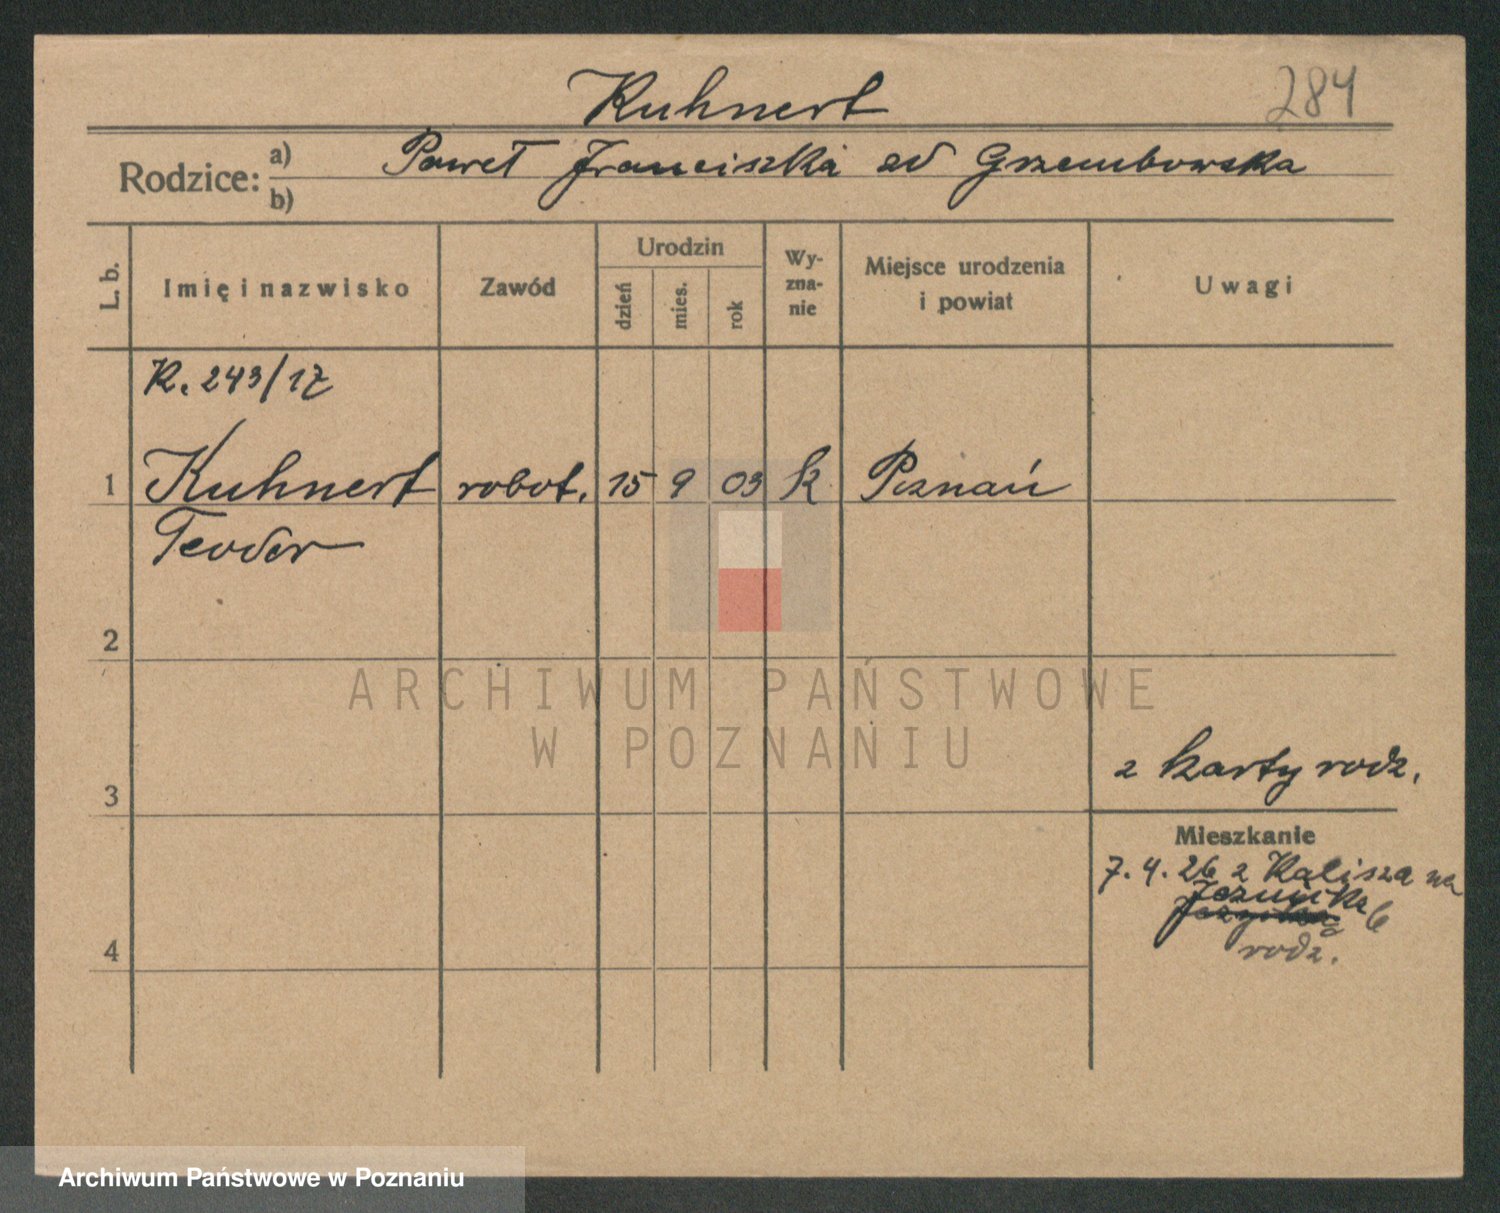 Kuhnert
284
Rodzice:
a) Paweł Franciszka zd Grzembowska
b)
L. b.
Imię i nazwisko
Zawód
Urodzin
dzień
mies.
rok
Wy-
zna-
nie
Miejsce urodzenia
i powiat
Uwagi
K. 243/17
1 Kuhnert robot. 15 9 03 k Poznań
Teodor
2
ARCHIWUM PAŃSTWOWE
W POZNANIU
z karty rodz.
3
Mieszkanie
7. 4. 26 z Kalisza na
Jezuicka 6
rodz.
4
Archiwum Państwowe w Poznaniu